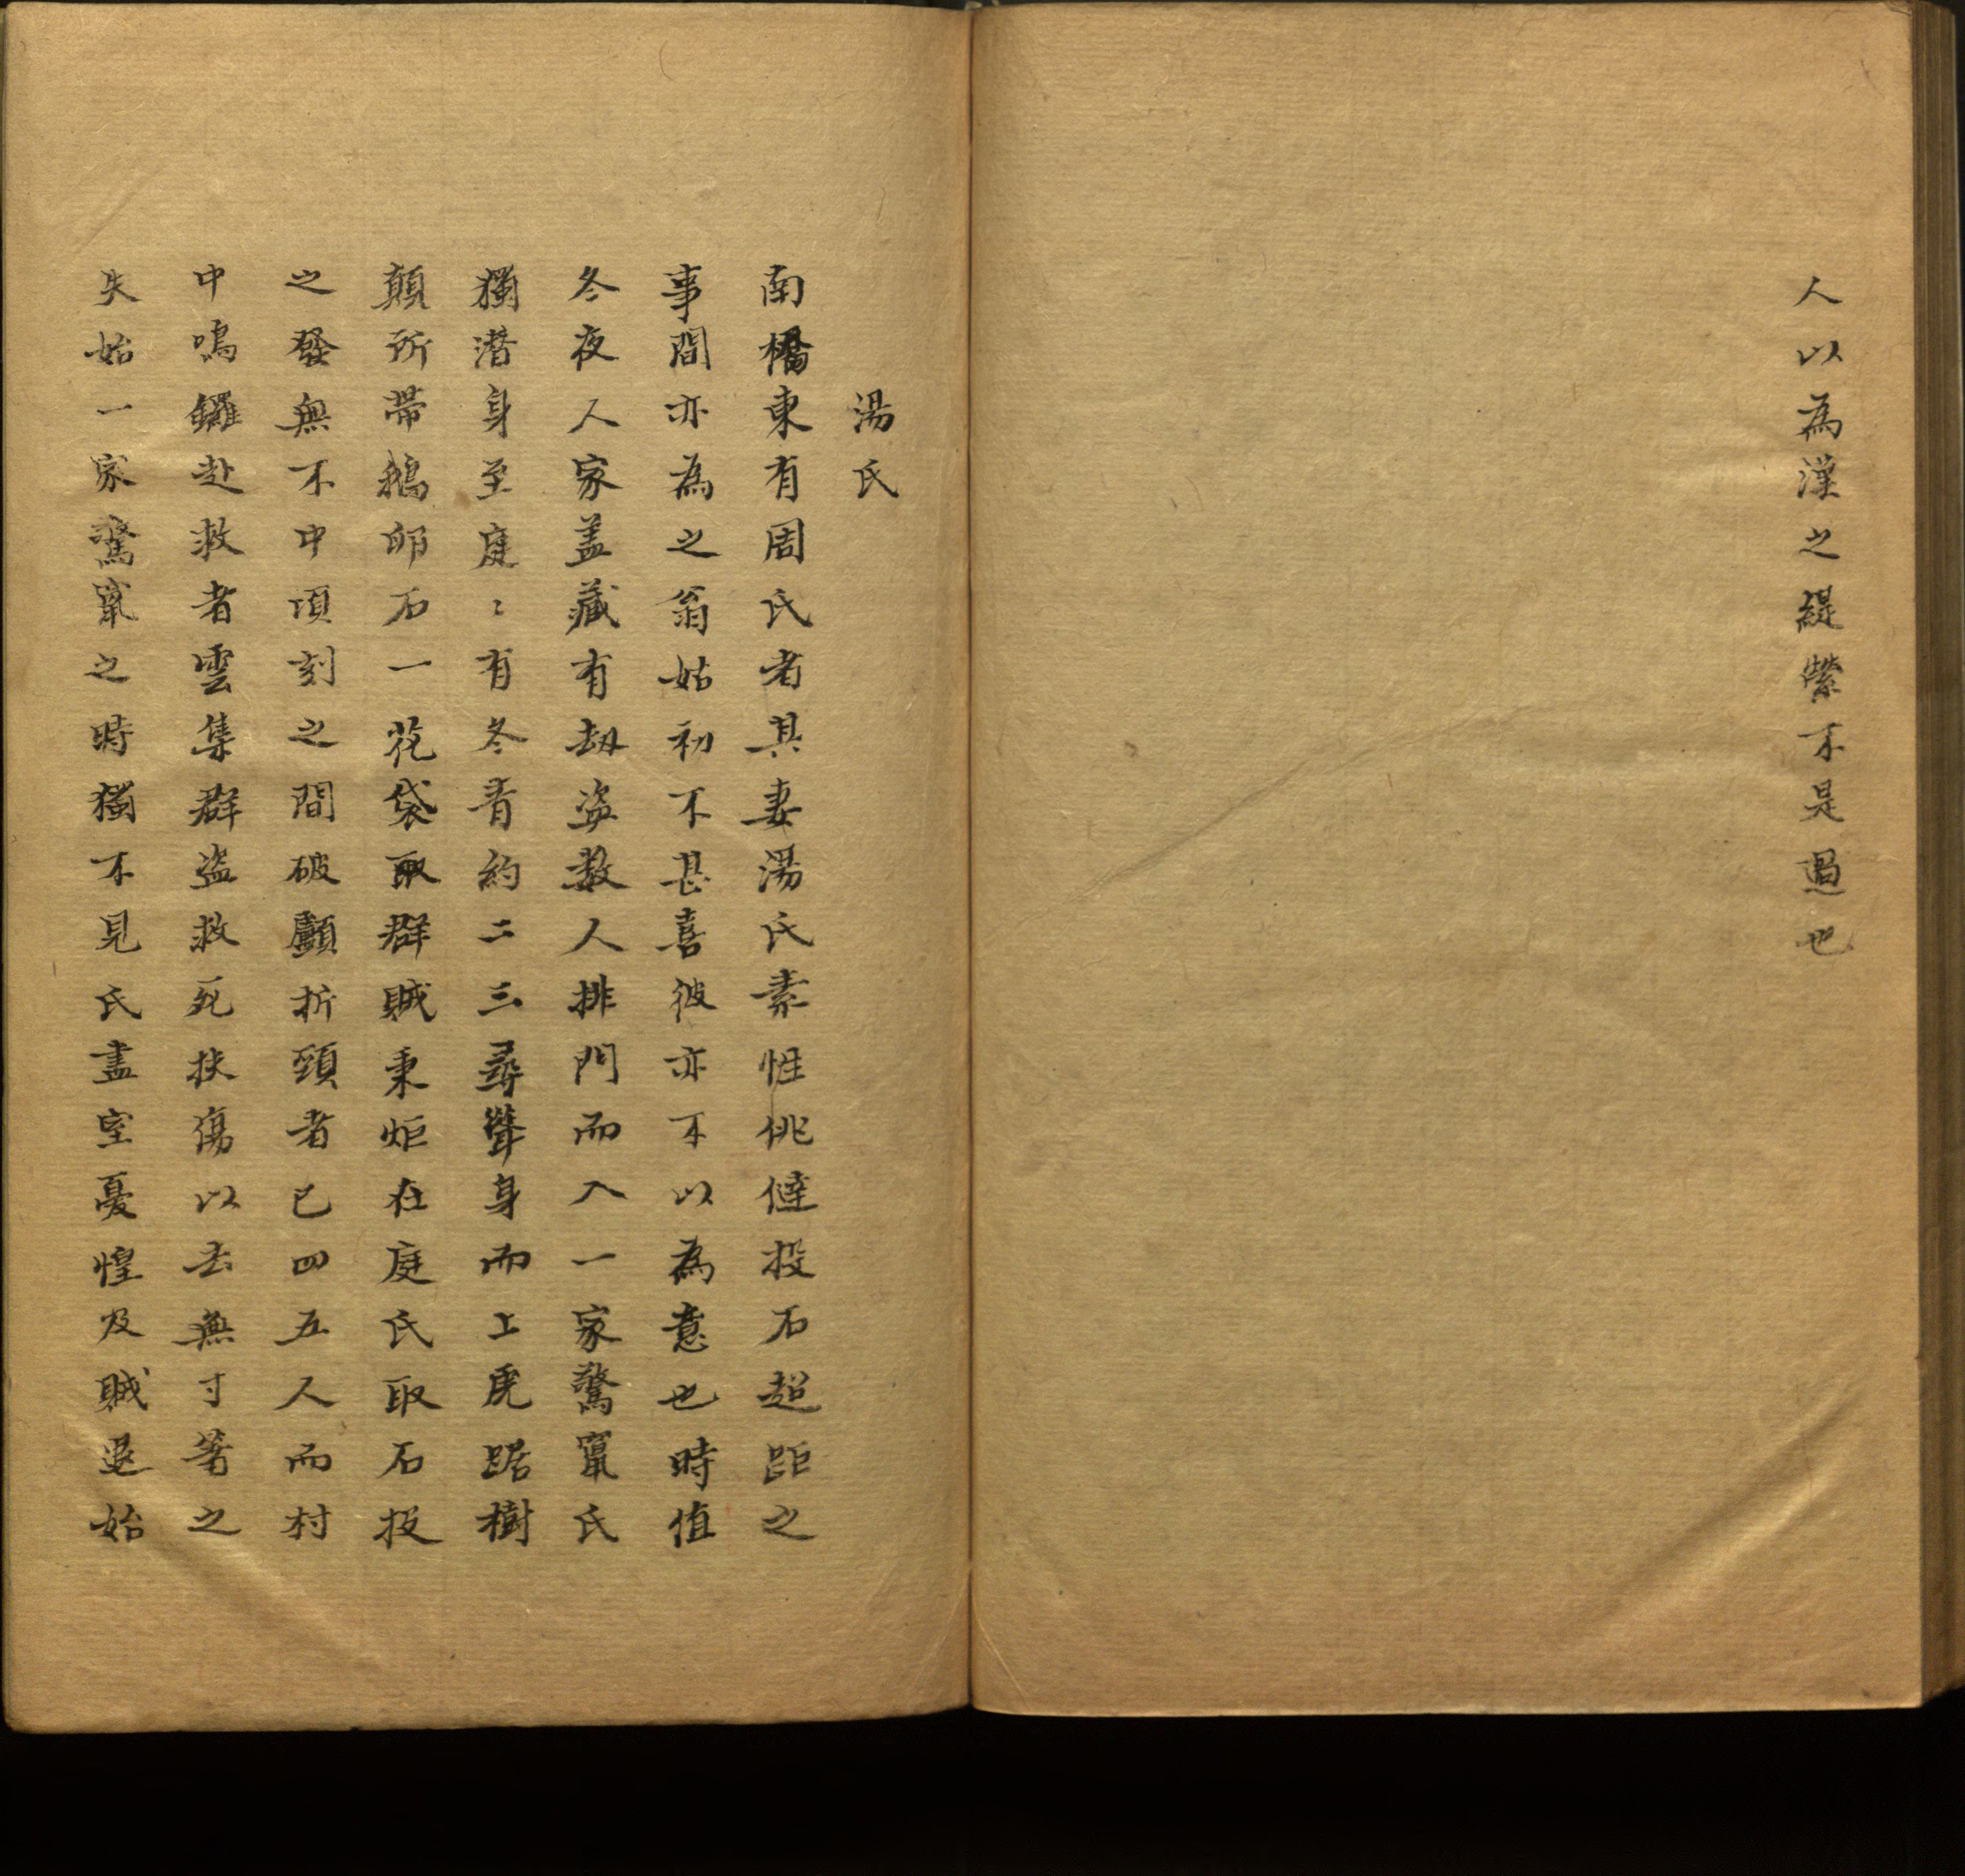 人以為漢之緹縈不是過也
湯氏
南橋東有周氏者其妻湯氏素性佻㒓投石超距之
事間亦為之翁姑初不甚喜彼亦不以為意也時值
冬夜人家盖藏有劫盗数人排門而入一家驚竄氏
獨潜身至庭〻有冬青約二三尋聳身而上虎踞樹
顛所帶鵝卵石一花袋取群賊秉炬在庭氏取石投
之發無不中頃刻之間破顱折頸者已四五人而村
中鳴鑼赴救者雲集群盗救死扶傷以去無寸箸之
失始一家驚竄之時獨不見氏盡室憂惶及賊退始